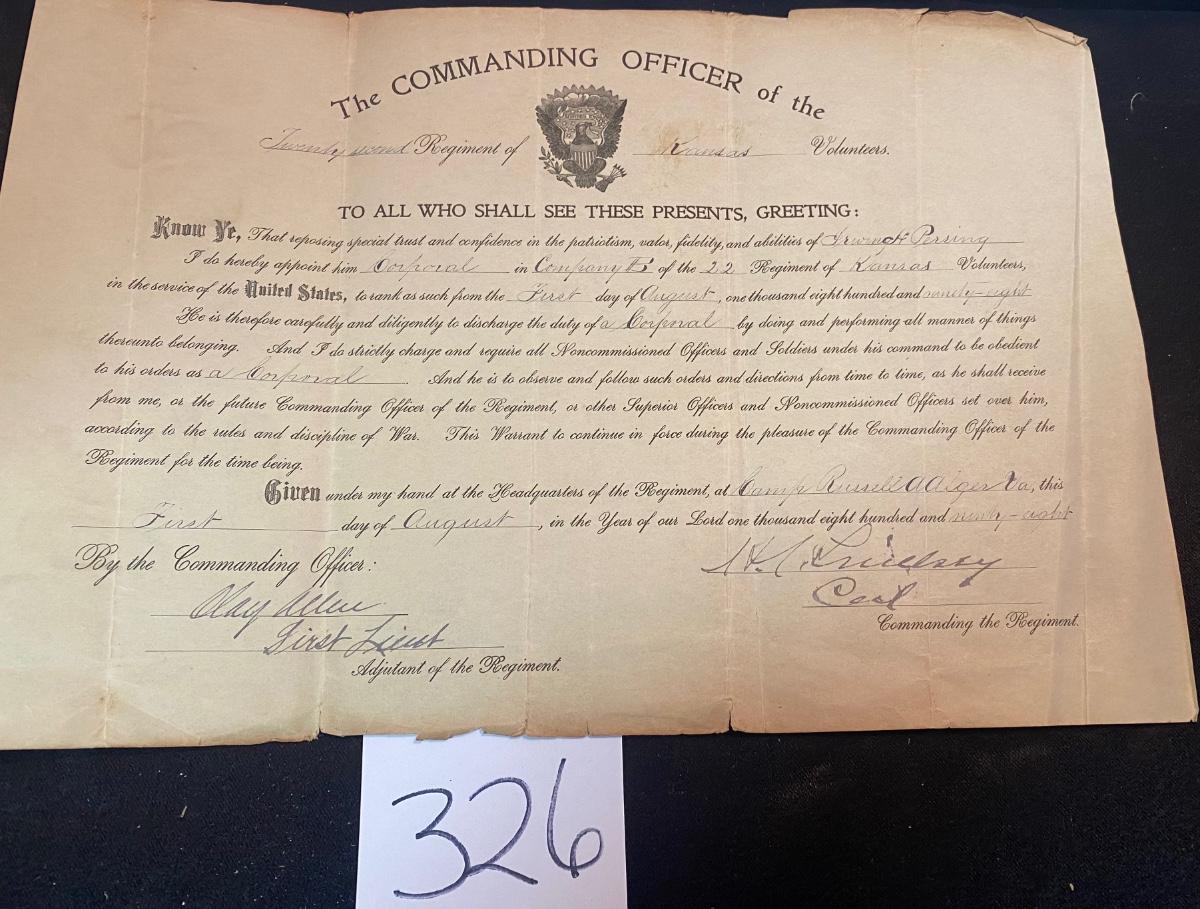 The COMMANDING OFFICER of the
Twenty second Regiment of Kansas Volunteers.
TO ALL WHO SHALL SEE THESE PRESENTS, GREETING:
Know Ye, That reposing special trust and confidence in the patriotism, valor, fidelity, and abilities of Irwin H Persing
I do hereby appoint him Corporal in Company E of the 22 Regiment of Kansas Volunteers,
in the service of the United States, to rank as such from the First day of August, one thousand eight hundred and ninety-eight
He is therefore carefully and diligently to discharge the duty of a Corporal by doing and performing all manner of things
thereunto belonging. And I do strictly charge and require all Noncommissioned Officers and Soldiers under his command to be obedient
to his orders as a Corporal. And he is to observe and follow such orders and directions from time to time, as he shall receive
from me, or the future Commanding Officer of the Regiment, or other Superior Officers and Noncommissioned Officers set over him,
according to the rules and discipline of War. This Warrant to continue in force during the pleasure of the Commanding Officer of the
Regiment for the time being.
Given under my hand at the Headquarters of the Regiment, at Camp Russell A Alger Va, this
First day of August, in the Year of our Lord one thousand eight hundred and ninety-eight
By the Commanding Officer:
H. C. Lindsay
Col
Commanding the Regiment.
Allen
First Lieut
Adjutant of the Regiment.
326